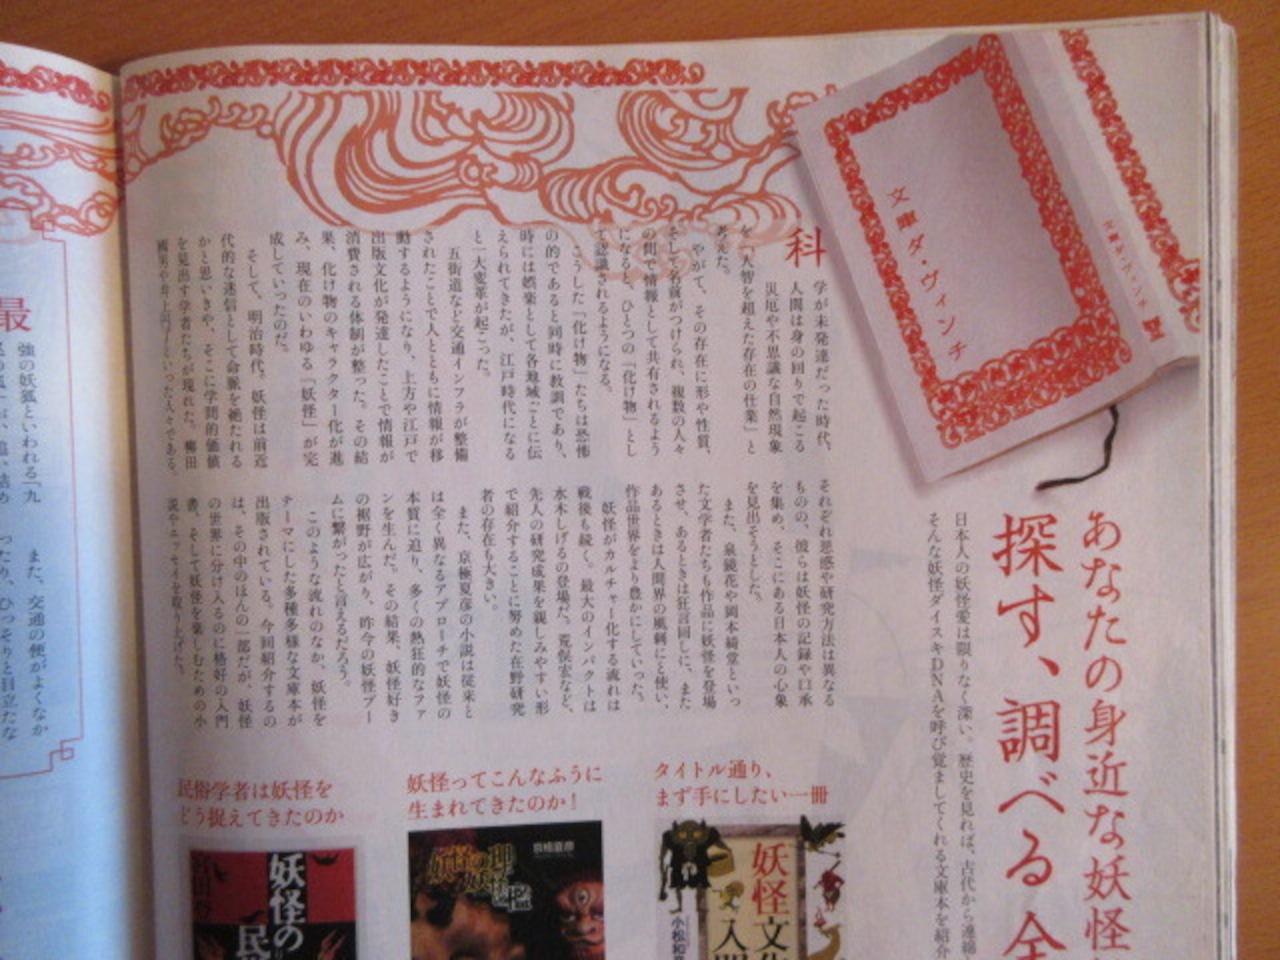 文庫ダ・ヴィンチ
文庫ダ・ヴィンチ
あなたの身近な妖怪
探す、調べる 全
日本人の妖怪愛は限りなく深い。歴史を見れば、古代から連綿
そんな妖怪ダイスキDNAを呼び覚ましてくれる文庫本を紹介
科
学が未発達だった時代、
人間は身の回りで起こる
災厄や不思議な自然現象
を「人智を超えた存在の仕業」と
考えた。
やがて、その存在に形や性質、
そして名前がつけられ、複数の人々
の間で情報として共有されるよう
になると、ひとつの「化け物」とし
て認識されるようになる。
こうした「化け物」たちは恐怖
の的であると同時に教訓であり、
時には娯楽として各地域ごとに伝
えられてきたが、江戸時代になる
と一大変革が起こった。
五街道など交通インフラが整備
されたことで人とともに情報が移
動するようになり、上方や江戸で
出版文化が発達したことで情報が
消費される体制が整った。その結
果、化け物のキャラクター化が進
み、現在のいわゆる「妖怪」が完
成していったのだ。
そして、明治時代。妖怪は前近
代的な迷信として命脈を絶たれる
かと思いきや、そこに学問的価値
を見出す学者たちが現れた。柳田
國男や井上円了といった人々である。
それぞれ思惑や研究方法は異なる
ものの、彼らは妖怪の記録や口承
を集め、そこにある日本人の心象
を見出そうとした。
また、泉鏡花や岡本綺堂といっ
た文学者たちも作品に妖怪を登場
させ、あるときは狂言回しに、また
あるときは人間界の風刺にと使い、
作品世界をより豊かにしていった。
妖怪がカルチャー化する流れは
戦後も続く。最大のインパクトは
水木しげるの登場だ。荒俣宏など、
先人の研究成果を親しみやすい形
で紹介することに努めた在野研究
者の存在も大きい。
また、京極夏彦の小説は従来と
は全く異なるアプローチで妖怪の
本質に迫り、多くの熱狂的なファ
ンを生んだ。その結果、妖怪好き
の裾野が広がり、昨今の妖怪ブー
ムに繋がったと言えるだろう。
このような流れのなか、妖怪を
テーマにした多種多様な文庫本が
出版されている。今回紹介するの
は、その中のほんの一部だが、妖怪
の世界に分け入るのに格好の入門
書、そして妖怪を楽しむための小
説やエッセイを取り上げた。
タイトル通り、
まず手にしたい一冊
妖怪文化
入門
小松和彦
妖怪ってこんなふうに
生まれてきたのか！
妖怪の理
妖怪の檻
京極夏彦
民俗学者は妖怪を
どう捉えてきたのか
妖怪の
民
宮田登
最
強の妖狐といわれる「九
また、交通の便がよくなか
ったり、ひっそりと目立たな